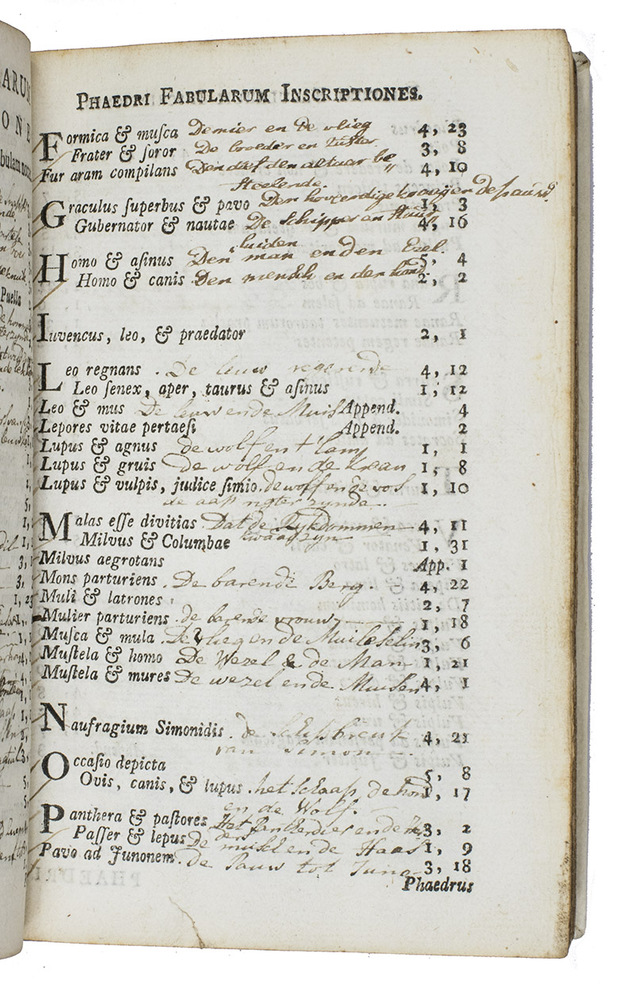 PHAEDRI FABULARUM INSCRIPTIONES.
Formica & musca De mier en de vlieg 4, 23
Frater & soror De broeder en Zuster 3, 8
Fur aram compilans Den dief den altaar be 4, 10
steelende.
Graculus superbus & pavo Den hovardige kraaij en De paauw 1, 3
Gubernator & nautae De Schipper en Stuur 4, 16
luiden
Homo & asinus Den man en den Ezel 5, 4
Homo & canis Den mensch en den hond 2, 2
Iuvencus, leo, & praedator 2, 1
Leo regnans De leeuw regerende 4, 12
Leo senex, aper, taurus & asinus 1, 12
Leo & mus De leeuw ende Muis Append. 4
Lepores vitae pertaesi Append. 2
Lupus & agnus de wolf en t lam 1, 1
Lupus & gruis de wolf en de kraan 1, 8
Lupus & vulpis, judice simio. de wolf en de vos 1, 10
de aap rigter zynde.
Malas esse divitias Dat de Rykdommen 4, 11
kwaad zyn
Milvus & Columbae 1, 31
Milvus aegrotans App. 1
Mons parturiens. De barende Berg. 4, 22
Muli & latrones 2, 7
Mulier parturiens de barende vrouw 1, 18
Musca & mula De vlieg en de Muilezelin 3, 6
Mustela & homo De Wezel en de Man 1, 21
Mustela & mures De wezel ende Muisen 4, 1
Naufragium Simonidis. de Schipbreuk 4, 21
van Simon
Occasio depicta 5, 8
Ovis, canis, & lupus. het schaap, de hond 1, 17
en de Wolf.
Panthera & pastores Het Pantherdier en de 3, 2
Passer & lepus De musch en de Haas 1, 9
Pavo ad Junonem. de Pauw tot Juno 3, 18
Phaedrus